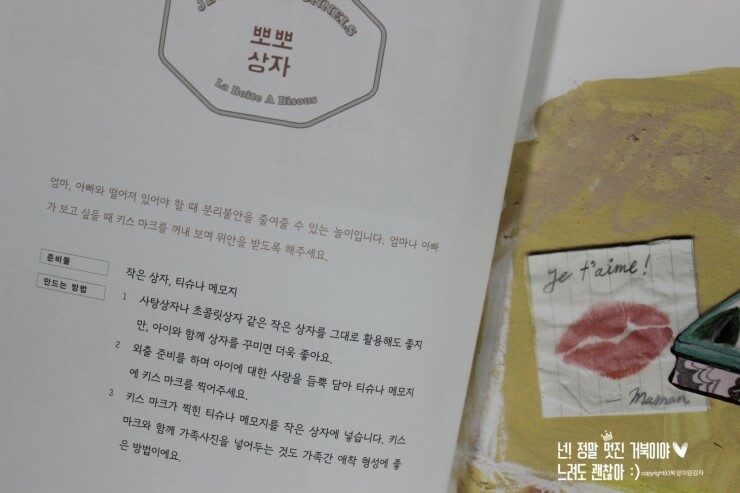 뽀뽀
상자
La Boite A Bisous
엄마, 아빠와 떨어져 있어야 할 때 분리불안을 줄여줄 수 있는 놀이입니다. 엄마나 아빠
가 보고 싶을 때 키스 마크를 꺼내 보며 위안을 받도록 해주세요.
준비물
작은 상자, 티슈나 메모지
만드는 방법
1 사탕상자나 초콜릿상자 같은 작은 상자를 그대로 활용해도 좋지
만, 아이와 함께 상자를 꾸미면 더욱 좋아요.
2 외출 준비를 하며 아이에 대한 사랑을 듬뿍 담아 티슈나 메모지
에 키스 마크를 찍어주세요.
3 키스 마크가 찍힌 티슈나 메모지를 작은 상자에 넣습니다. 키스
마크와 함께 가족사진을 넣어두는 것도 가족간 애착 형성에 좋
은 방법이에요.
je t'aime!
- Maman
넌! 정말 멋진 거북이야
느려도 괜찮아 :) copyright(c)복덩이맘감자